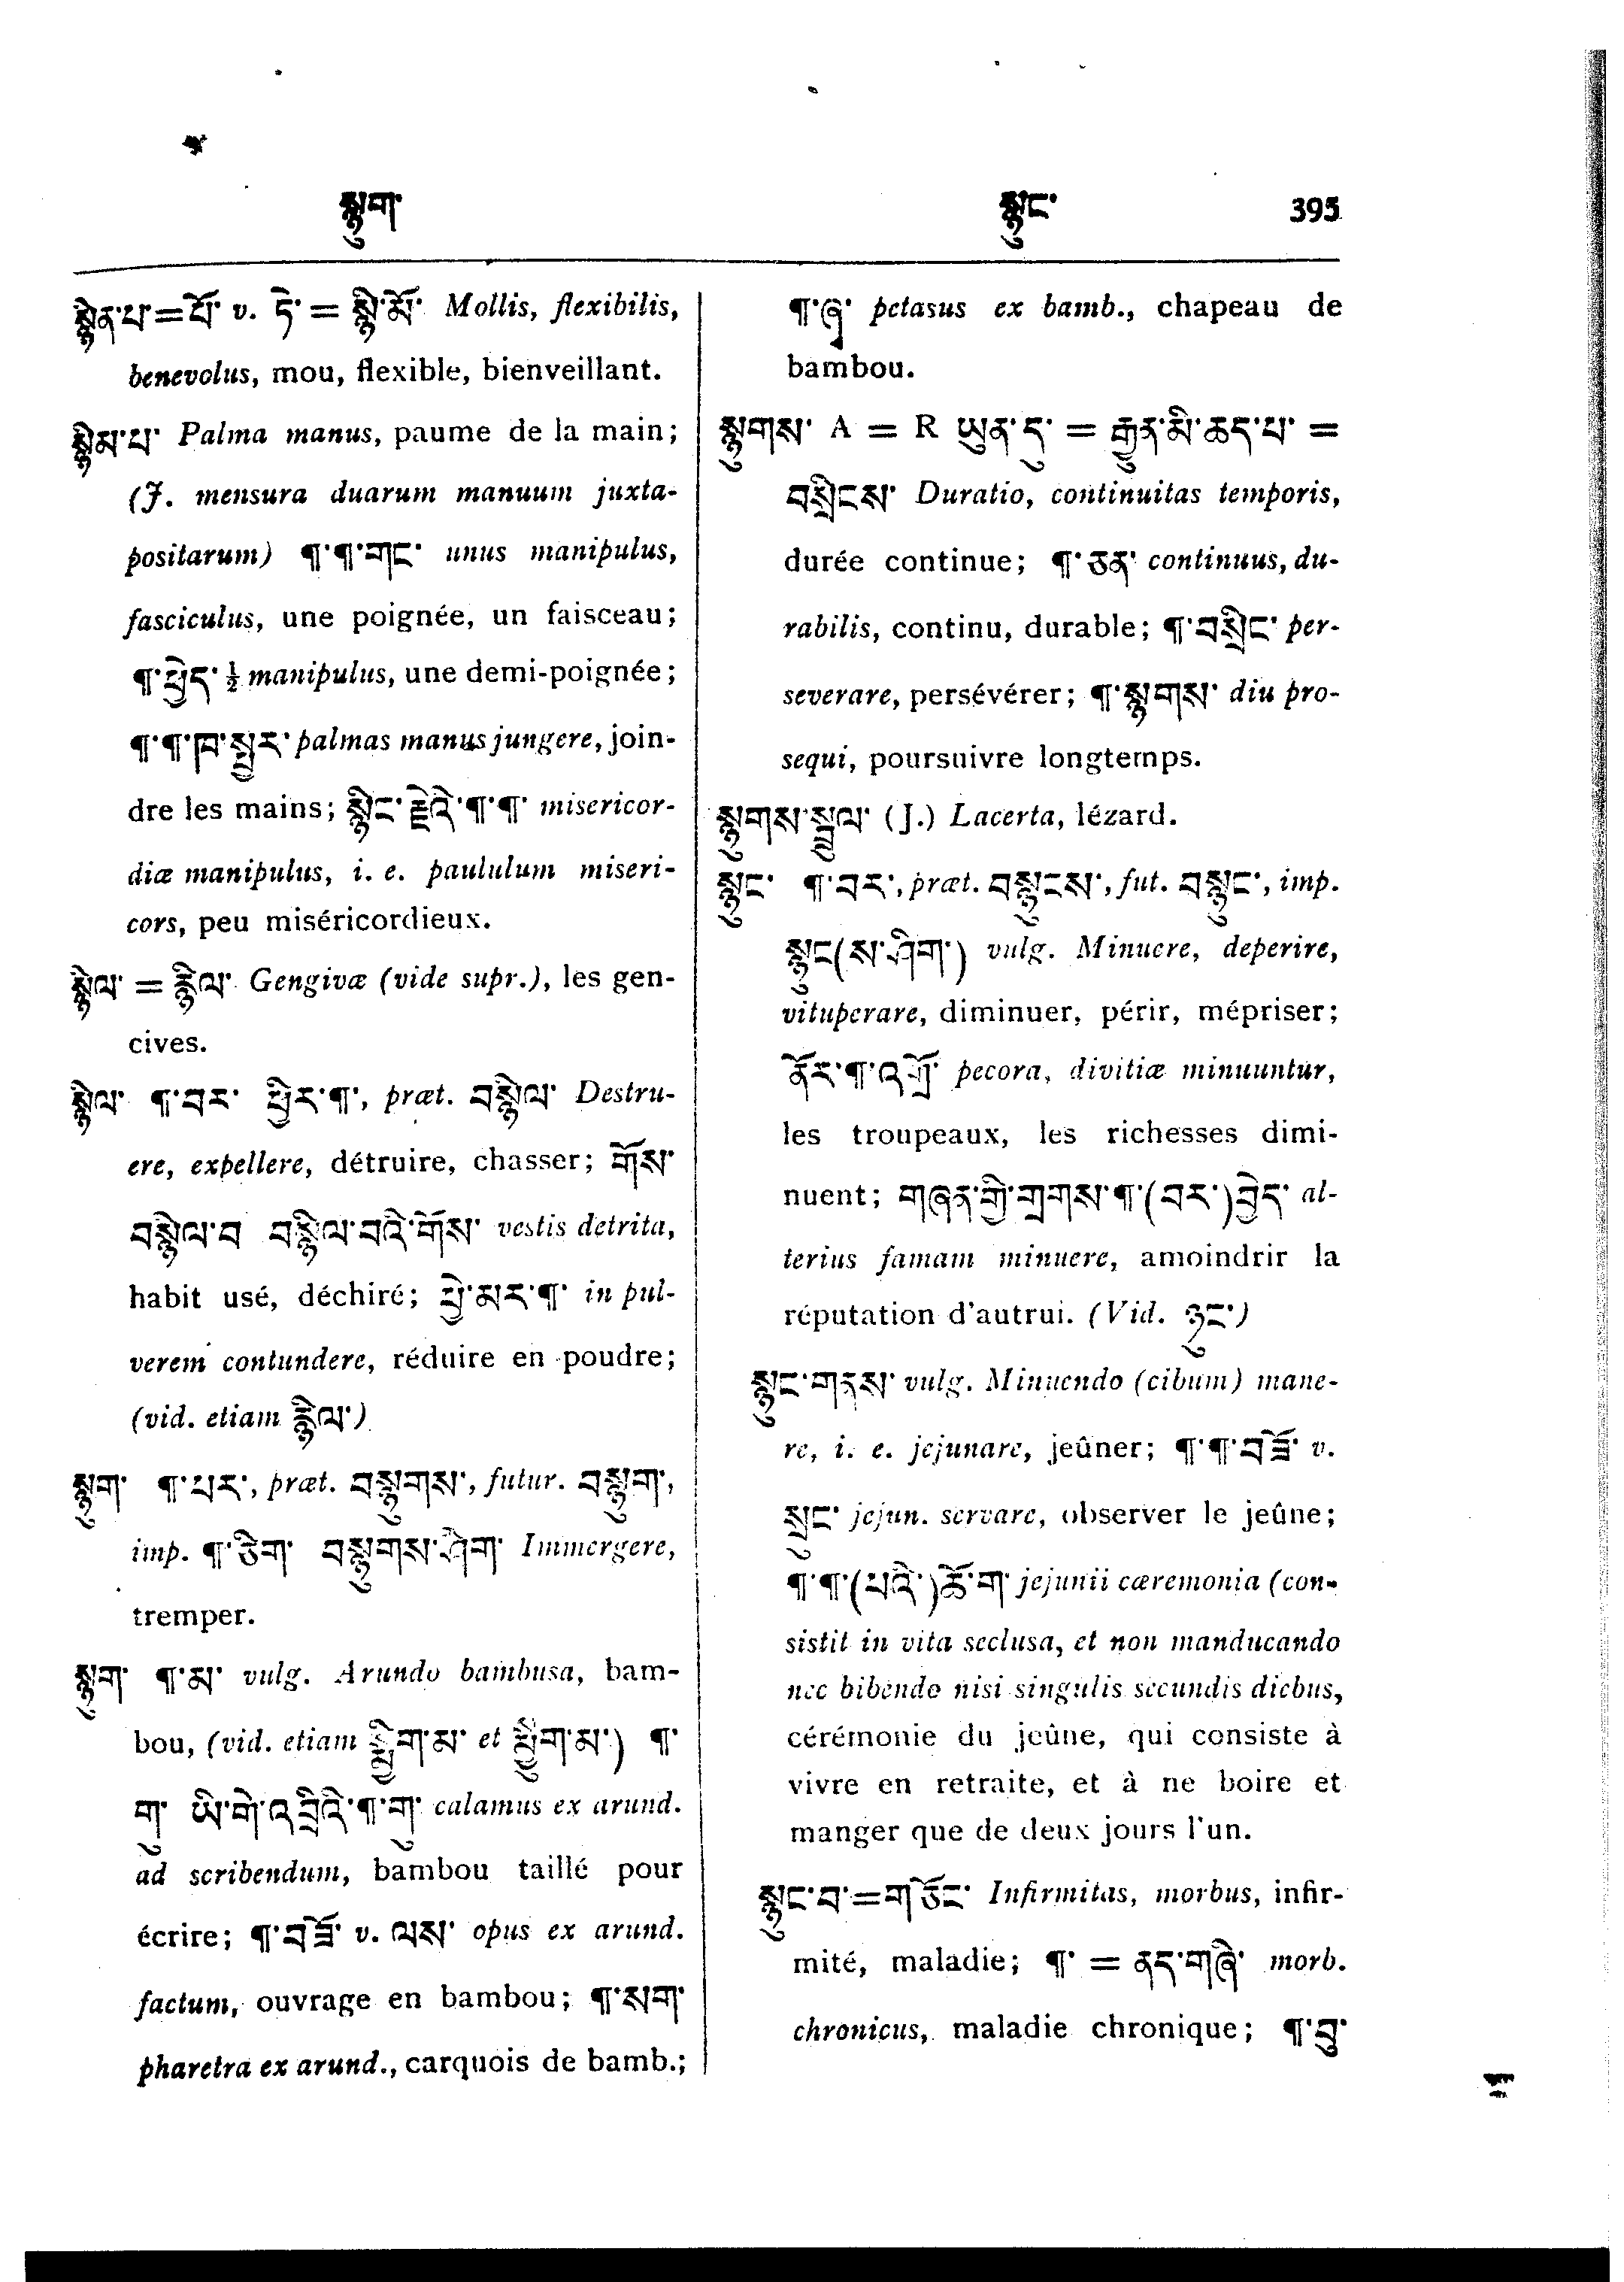 སྙུག་
སྙུང་ 395
སྙེན་པ་=པོ་ v. ཏེ་ = སྙེ་མོ་ Mollis, flexibilis,
benevolus, mou, flexible, bienveillant.
སྙིམ་པ་ Palma manus, paume de la main;
(J. mensura duarum manuum juxta-
positarum) ¶་¶་གང་ unus manipulus,
fasciculus, une poignée, un faisceau;
¶་ཕྱེད་ ½ manipulus, une demi-poignée;
¶་¶་ཁ་སྤྱར་ palmas manus jungere, join-
dre les mains; སྙིང་རྗེའི་¶་¶་ misericor-
diæ manipulus, i. e. paululum miseri-
cors, peu miséricordieux.
སྙིལ་ = རྙིལ་ Gengivæ (vide supr.), les gen-
cives.
སྙིལ་ ¶་བར་ ཕྱིར་¶་, præt. བསྙིལ་ Destru-
ere, expellere, détruire, chasser; གོས་
བསྙིལ་བ བསྙིལ་བའི་གོས་ vestis detrita,
habit usé, déchiré; ཕྱེ་མར་¶་ in pul-
verem contundere, réduire en poudre;
(vid. etiam རྙིལ་)
སྙུག་ ¶་པར་, præt. བསྙུགས་, futur. བསྙུག་,
imp. ¶་ཅིག་ བསྙུགས་ཤིག་ Immergere,
tremper.
སྙུག་ ¶་མ་ vulg. Arundo bambusa, bam-
bou, (vid. etiam སྨྱིག་མ་ et སྨྱིག་མ་) ¶་
གུ་ ཡི་གེ་འབྲིའི་¶་གུ་ calamus ex arund.
ad scribendum, bambou taillé pour
écrire; ¶་བཟོ་ v. ལས་ opus ex arund.
factum, ouvrage en bambou; ¶་སག་
pharetra ex arund., carquois de bamb.;
¶་ཞྭ་ petasus ex bamb., chapeau de
bambou.
སྙུགས་ A = R ཡུན་དུ་ = རྒྱུན་མི་ཆད་པ་ =
བསྲིངས་ Duratio, continuitas temporis,
durée continue; ¶་ཅན་ continuus, du-
rabilis, continu, durable; ¶་བསྲིང་ per-
severare, persévérer; ¶་སྙགས་ diu pro-
sequi, poursuivre longtemps.
སྙུགས་སྦྲུལ་ (J.) Lacerta, lézard.
སྙུང་ ¶་བར་, præt. བསྙུངས་, fut. བསྙུང་, imp.
སྙུང(ས་ཤིག་) vulg. Minuere, deperire,
vituperare, diminuer, périr, mépriser;
ནོར་¶་འགྲོ་ pecora, divitiæ minuuntur,
les troupeaux, les richesses dimi-
nuent; གཞན་གྱི་གྲགས་¶་(བར་)བྱེད་ al-
terius famam minuere, amoindrir la
réputation d'autrui. (Vid. ཉུང་)
སྙུང་གནས་ vulg. Minuendo (cibum) mane-
re, i. e. jejunare, jeûner; ¶་¶་བཟོ་ v.
སྲུང་ jejun. servare, observer le jeûne;
¶་¶་(པའི་)ཆོ་ག་ jejunii cæremonia (con-
sistit in vita seclusa, et non manducando
nec bibendo nisi singulis secundis diebus,
cérémonie du jeûne, qui consiste à
vivre en retraite, et à ne boire et
manger que de deux jours l'un.
སྙུང་བ་=གཅོང་ Infirmitas, morbus, infir-
mité, maladie; ¶་ = ནད་གཞི་ morb.
chronicus, maladie chronique; ¶་བུ་